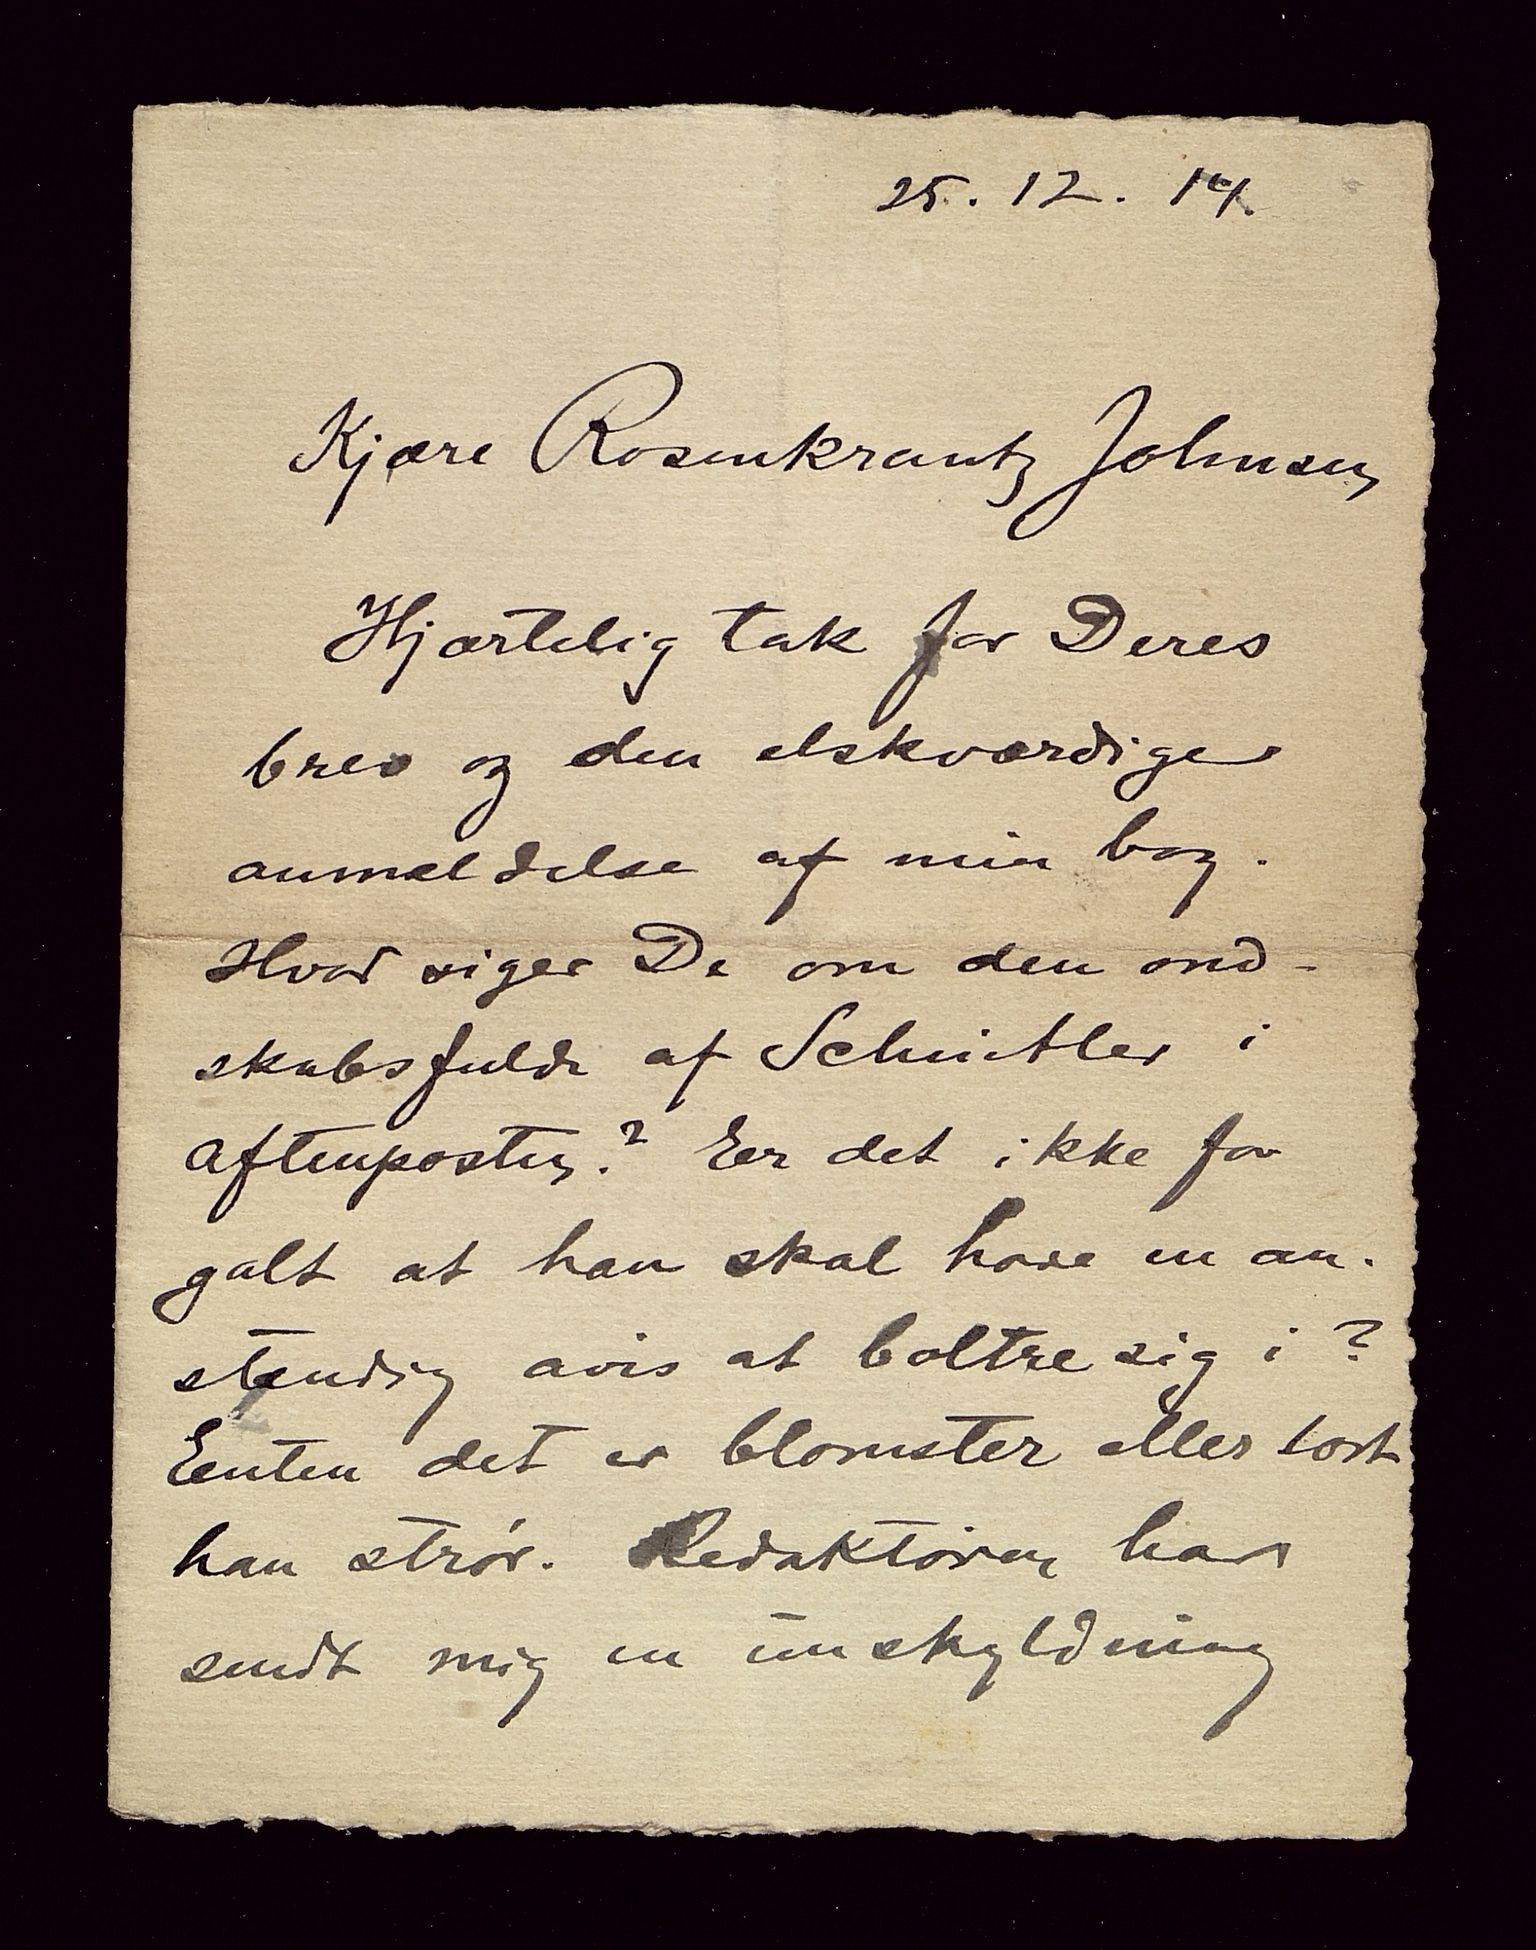 25. 12. 14.
Kjære Rosenkrantz Johnsen,
Hjærtelig tak for Deres
brev og den elskværdige
anmeldelse af min bog.
Hvad siger De om den ond-
skabsfulde af Schnitler i
Aftenposten? Er det ikke for
galt at han skal have en an-
stændig avis at boltre sig i?
Enten det er blomster eller lort
han strør. Redaktøren har
sendt mig en unskyldning